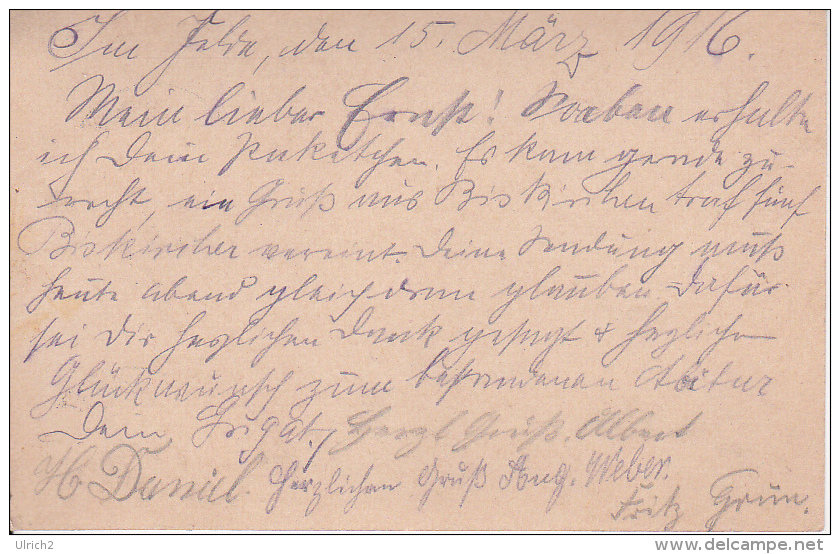 Im Felde, den 15. März 1916.
Mein lieber Ernst! Soeben erhalte
ich Dein Paketchen. Es kam gerade zu-
recht, ein Gruß aus Biskirchen traf fünf
Biskircher vereint. Deine Sendung muß
heute abend gleich dran glauben. Dafür
sei Dir herzlichen Dank gesagt & herzlichen
Glückwunsch zum bestandenen Abitur
Dein Herzl Gruß. Albert
H Daniel. Herzlichen Gruß Aug. Weber.
Fritz Grün.
Ulrich2
delcampe.net